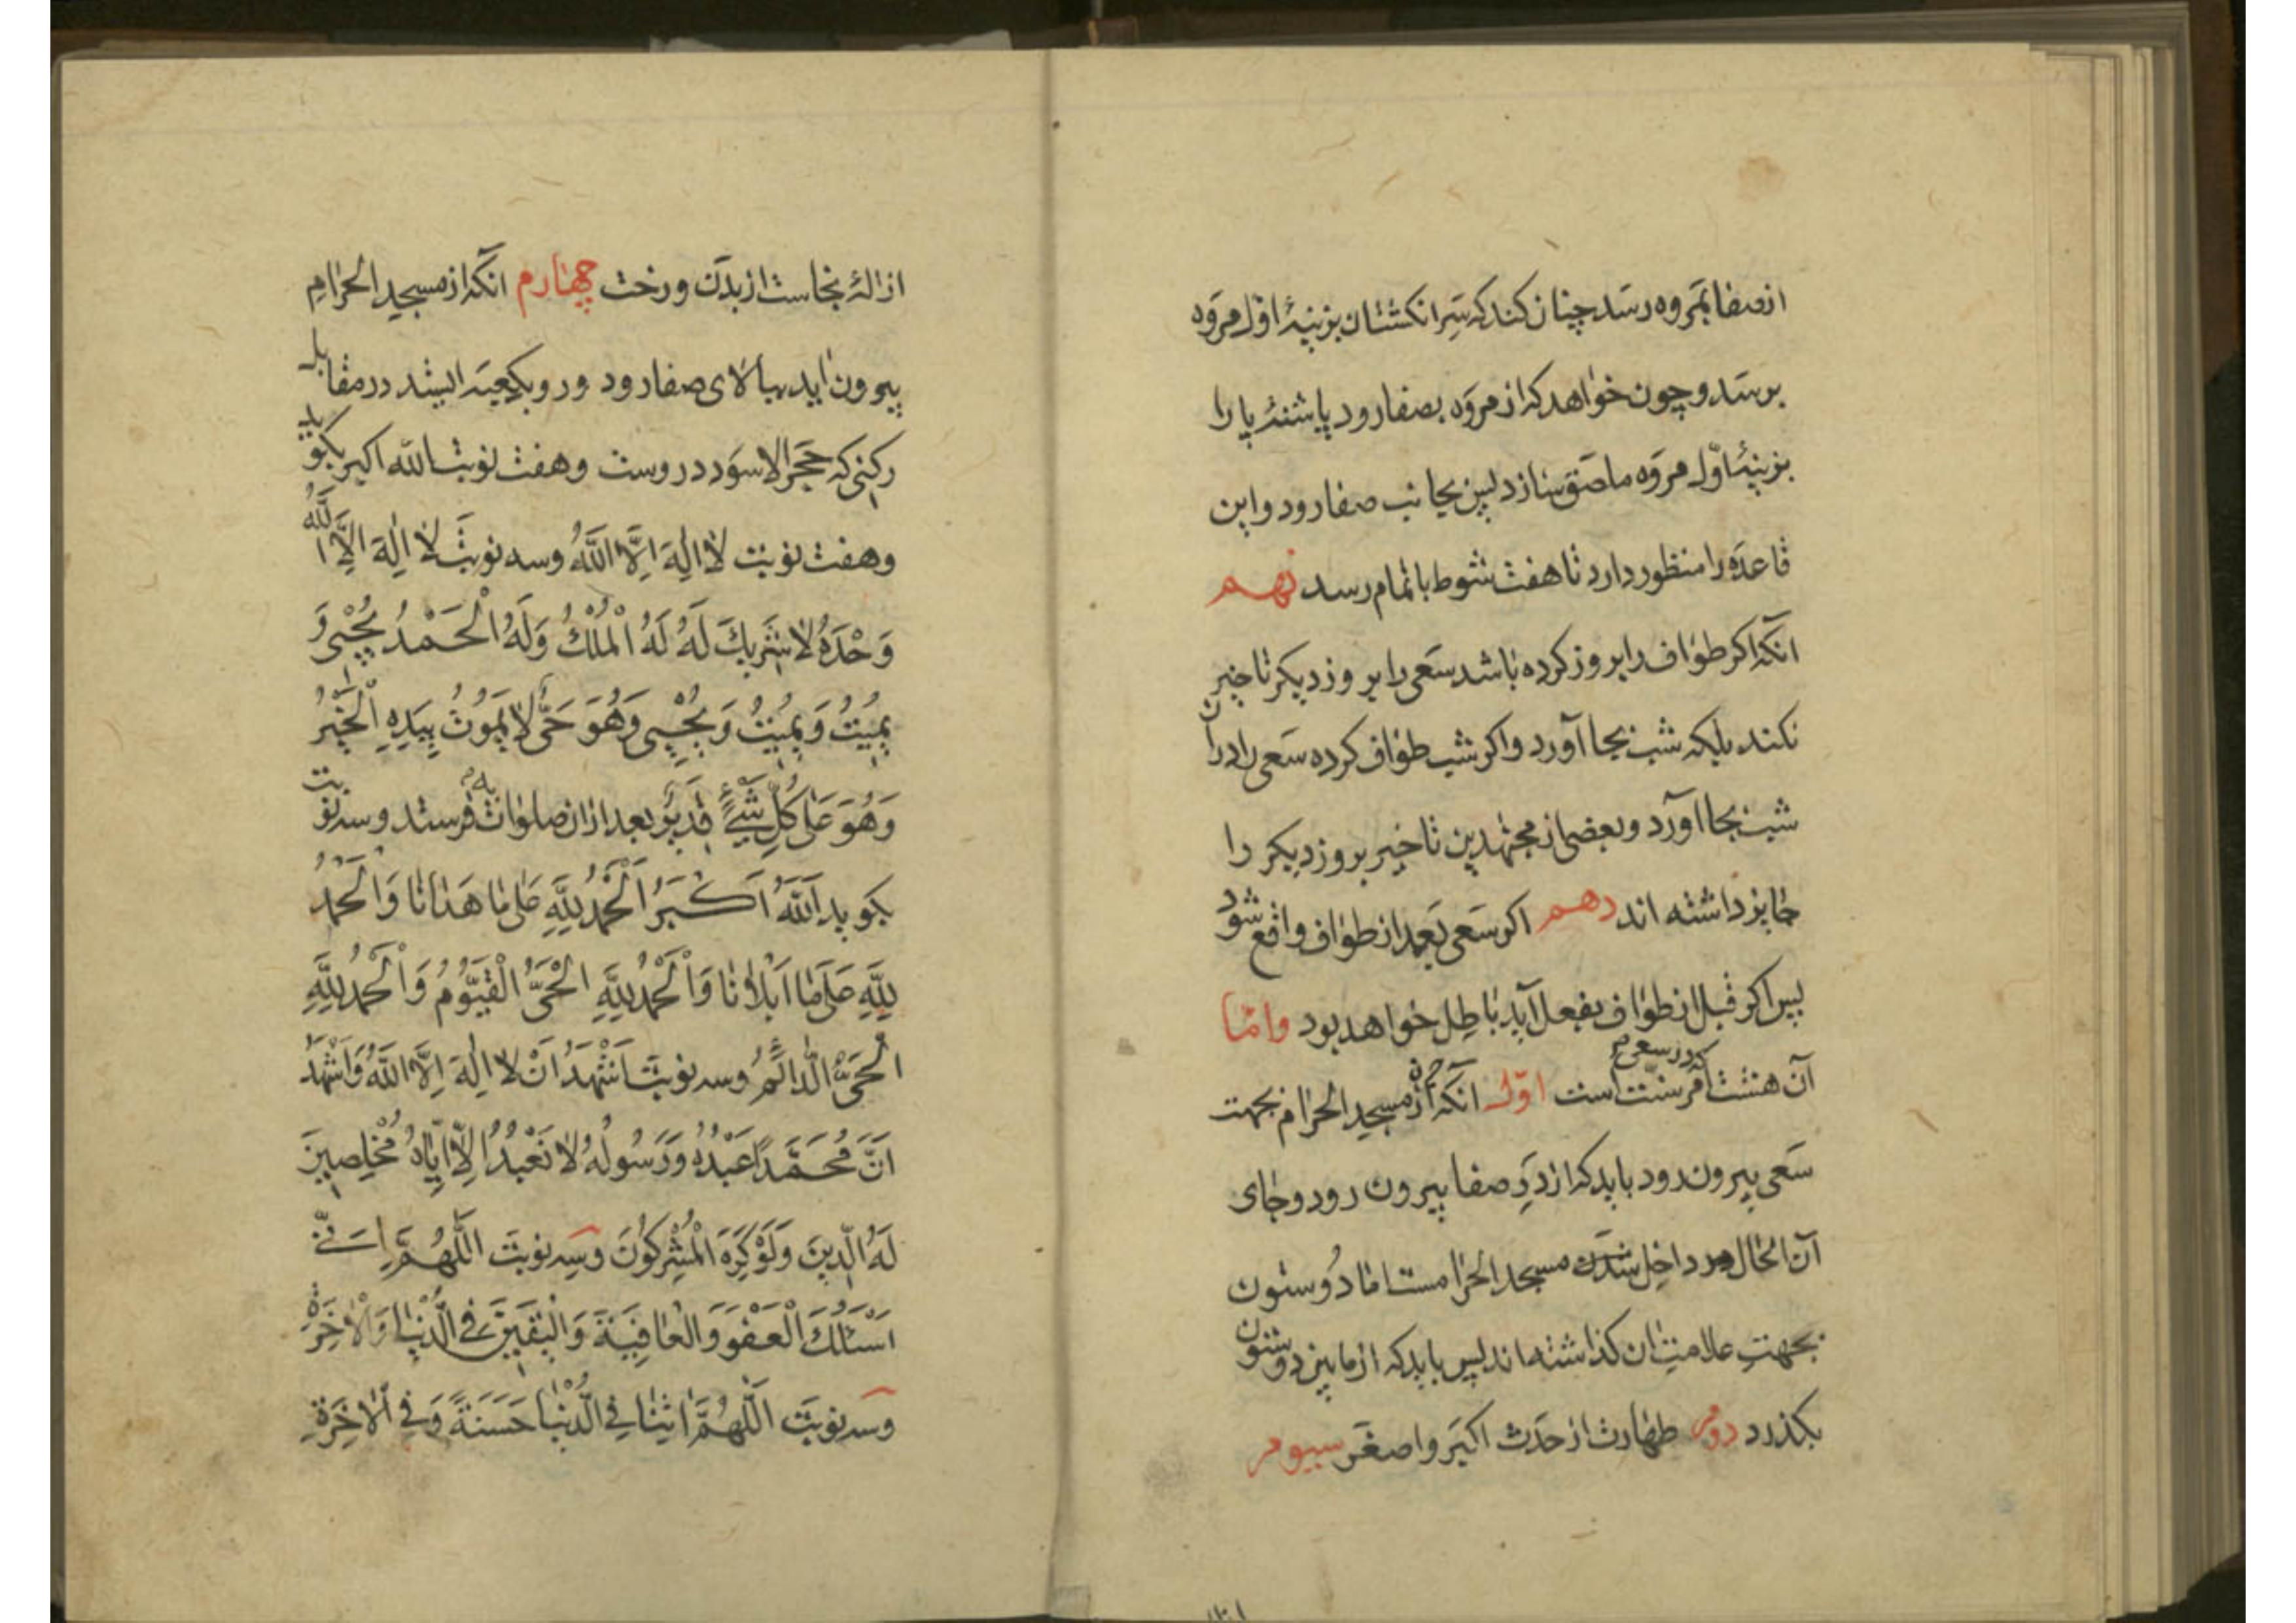 ازصفا بمروه رسد چنان کند که سر انکشتان بزینهٔ اول مروه
برسد و چون خواهد که از مروه بصفا رود پاشنهٔ پا را
بزینهٔ اول مروه ماصق سازد پس بجانب صفا رود و این
قاعده را منظور دارد تا هفت شوط باتمام رسد نهم
آنکه اکر طواف را بروز کرده باشد سعی را بروز دیکر تاخیر
نکند بلکه شب بجا آورد و اکر شب طواف کرده سعی را در ان
شب بجا آورد و بعضی از مجتهدین تاخیر بروز دیکر را
جایز داشته اند دهم اکر سعی بعد از طواف واقع شود
پس اکر قبل از طواف بفعل آید باطل خواهد بود و امّا
آن هشت امر که در سعی سنت است اوّل آنکه از مسجد الحرام بجهت
سعی بیرون رود باید که از در صفا بیرون رود و جای
آن الحال در داخل شدن مسجد الحرامست اما دو ستون
بجهت علامت ان کذاشته اند پس باید که از مابین دو ستون
بکذرد دوم طهارت از حدث اکبر و اصغر سیوم
ازالهٔ نجاست از بدن و رخت چهارم انکه از مسجد الحرام
بیرون اید ببالای صفا رود و رو بکعبه ایستد در مقابل
رکنی که حجر الاسود در وست و هفت نوبت الله اکبر بکوید
و هفت نوبت لا اِلهَ اِلَّا اللهُ و سه نوبت لا اِلهَ اِلَّا اللهُ
وَحْدَهُ لا شَرِیكَ لَهُ لَهُ الْمُلْكُ وَلَهُ الْحَمْدُ یُحْیی وَ
یُمیتُ وَ یُمیتُ وَ یُحْیی وَهُوَ حَیٌّ لا یَمُوتُ بِیَدِهِ الْخَیْرُ
وَهُوَ عَلی کُلِّ شَیْءٍ قَدیرٌ بعد ازان صلوات فرستد و سه نوبت
بکوید اَللهُ اَکْبَرُ اَلْحَمْدُ لِلّهِ عَلی ما هَدانا وَ الْحَمْدُ
لِلّهِ عَلی ما اَبْلانا وَ الْحَمْدُ لِلّهِ الْحَیُّ الْقَیُّومُ وَ الْحَمْدُ لِلّهِ
الْحَیُّ الدّائِمُ و سه نوبت اَشْهَدُ اَنْ لا اِلهَ اِلَّا اللهُ وَ اَشْهَدُ
اَنَّ مُحَمَّداً عَبْدُهُ وَ رَسُولُهُ لا نَعْبُدُ اِلّا اِیّاهُ مُخْلِصینَ
لَهُ الدّینَ وَلَوْ کَرِهَ الْمُشْرِکُونَ و سه نوبت اَللّهُمَّ اِنّی
اَسْئَلُكَ الْعَفْوَ وَ الْعافِیَةَ وَ الْیَقینَ فِی الدُّنْیا وَ الْاخِرَةِ
و سه نوبت اَللّهُمَّ اتِنا فِی الدُّنْیا حَسَنَةً وَ فِی الْاخِرَةِ